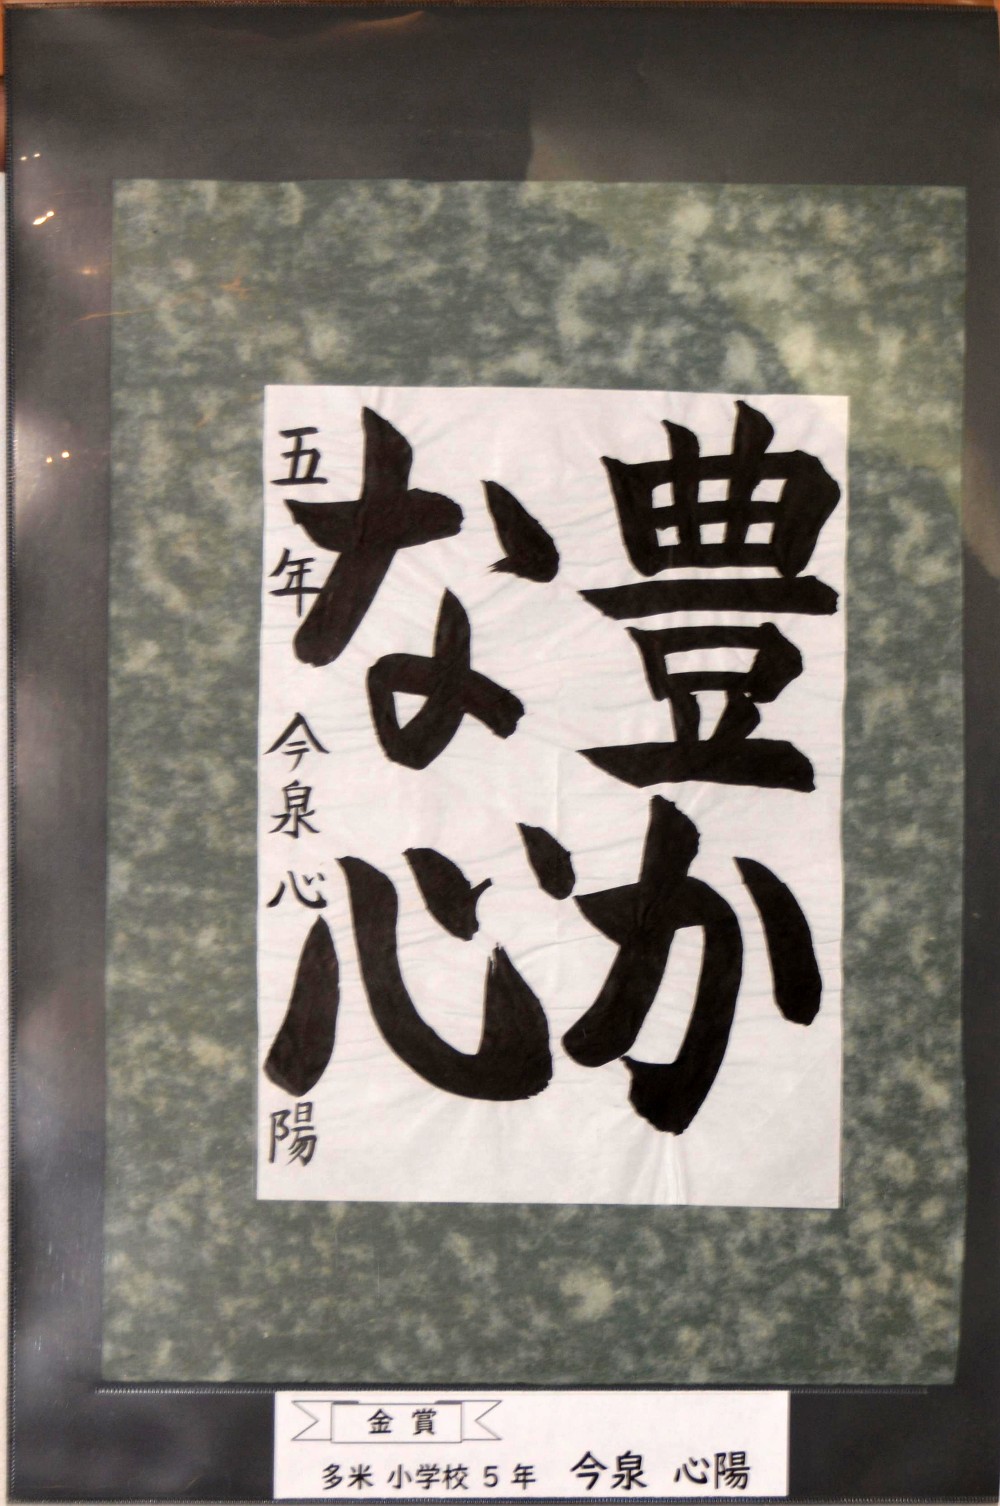 豊か
な心
五年 今泉心陽
金賞
多米 小学校 5 年 今泉 心陽